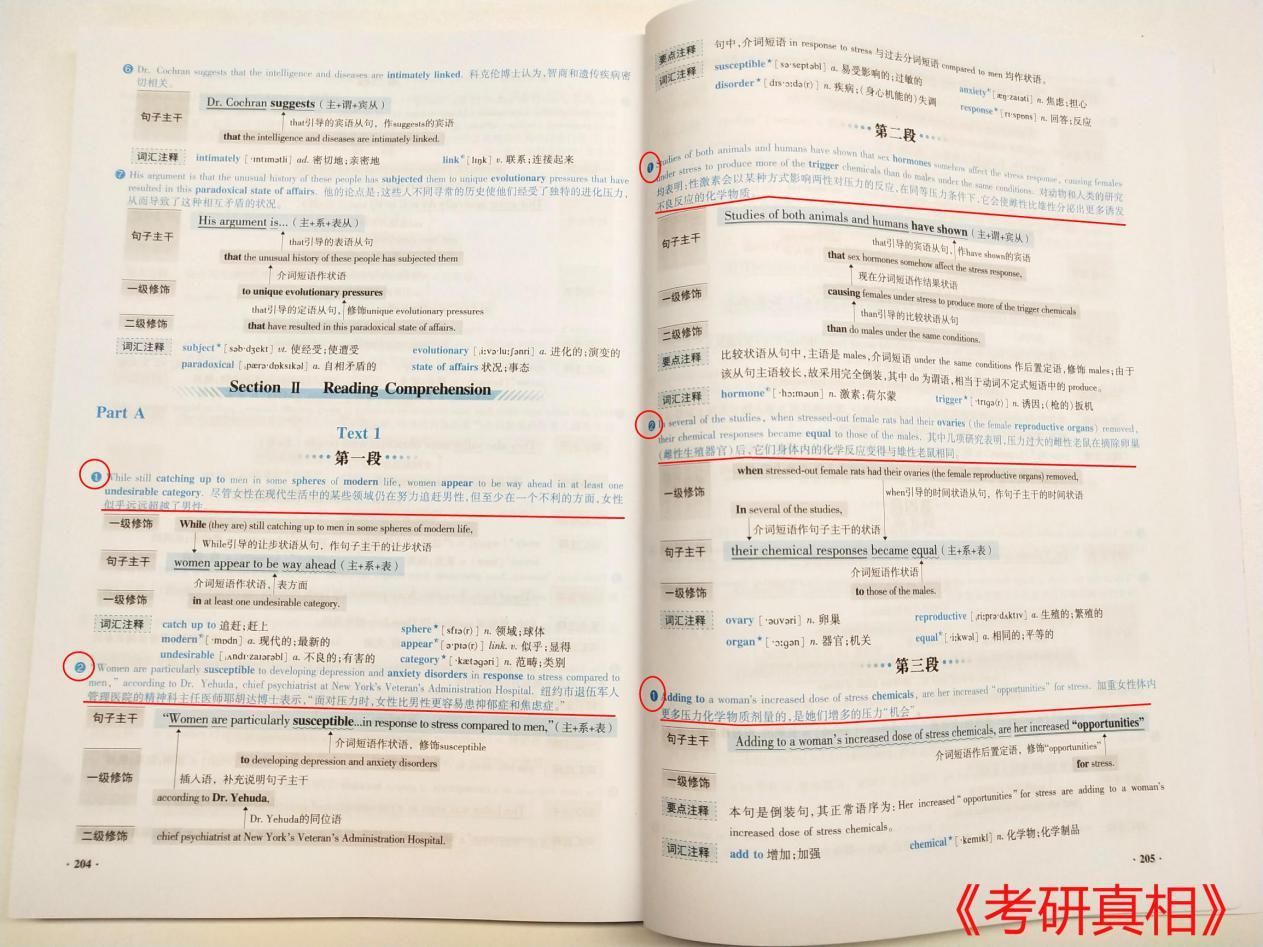 ❻ Dr. Cochran suggests that the intelligence and diseases are intimately linked. 科克伦博士认为,智商和遗传疾病密
切相关。
句子主干
Dr. Cochran suggests (主+谓+宾从)
that引导的宾语从句, 作suggests的宾语
that the intelligence and diseases are intimately linked.
词汇注释
intimately [ˈɪntɪmətli] ad. 密切地;亲密地 link* [lɪŋk] v. 联系;连接起来
❼ His argument is that the unusual history of these people has subjected them to unique evolutionary pressures that have
resulted in this paradoxical state of affairs. 他的论点是:这些人不同寻常的历史使他们经受了独特的进化压力,
从而导致了这种相互矛盾的状况。
句子主干
His argument is... (主+系+表从)
that引导的表语从句
that the unusual history of these people has subjected them
介词短语作状语
一级修饰
to unique evolutionary pressures
that引导的定语从句, 修饰unique evolutionary pressures
二级修饰
that have resulted in this paradoxical state of affairs.
词汇注释
subject* [səbˈdʒekt] vt. 使经受;使遭受 evolutionary [ˌiːvəˈluːʃənri] a. 进化的;演变的
paradoxical [ˌpærəˈdɒksɪkəl] a. 自相矛盾的 state of affairs 状况;事态
Section Ⅱ Reading Comprehension
Part A
Text 1
第一段
❶ While still catching up to men in some spheres of modern life, women appear to be way ahead in at least one
undesirable category. 尽管女性在现代生活中的某些领域仍在努力追赶男性,但至少在一个不利的方面,女性
似乎远远超越了男性。
一级修饰
While (they are) still catching up to men in some spheres of modern life,
While引导的让步状语从句, 作句子主干的让步状语
句子主干
women appear to be way ahead (主+系+表)
介词短语作状语, 表方面
一级修饰
in at least one undesirable category.
词汇注释
catch up to 追赶;赶上 sphere* [sfɪə(r)] n. 领域;球体
modern* [ˈmɒdn] a. 现代的;最新的 appear* [əˈpɪə(r)] link. v. 似乎;显得
undesirable [ˌʌndɪˈzaɪərəbl] a. 不良的;有害的 category* [ˈkætəgəri] n. 范畴;类别
❷ "Women are particularly susceptible to developing depression and anxiety disorders in response to stress compared to
men," according to Dr. Yehuda, chief psychiatrist at New York's Veteran's Administration Hospital. 纽约市退伍军人
管理医院的精神科主任医师耶胡达博士表示,“面对压力时,女性比男性更容易患抑郁症和焦虑症。”
句子主干
“Women are particularly susceptible...in response to stress compared to men,”(主+系+表)
介词短语作状语, 修饰susceptible
to developing depression and anxiety disorders
一级修饰
插入语, 补充说明句子主干
according to Dr. Yehuda,
Dr. Yehuda的同位语
二级修饰
chief psychiatrist at New York's Veteran's Administration Hospital.
· 204 ·
要点注释
句中,介词短语 in response to stress 与过去分词短语 compared to men 均作状语。
词汇注释
susceptible* [səˈseptəbl] a. 易受影响的;过敏的 anxiety* [æŋˈzaɪəti] n. 焦虑;担心
disorder* [dɪsˈɔːdə(r)] n. 疾病;(身心机能的)失调 response* [rɪˈspɒns] n. 回答;反应
第二段
❶ Studies of both animals and humans have shown that sex hormones somehow affect the stress response, causing females
under stress to produce more of the trigger chemicals than do males under the same conditions. 对动物和人类的研究
均表明:性激素会以某种方式影响两性对压力的反应,在同等压力条件下,它会使雌性比雄性分泌出更多诱发
不良反应的化学物质。
句子主干
Studies of both animals and humans have shown (主+谓+宾从)
that引导的宾语从句, 作have shown的宾语
that sex hormones somehow affect the stress response,
现在分词短语作结果状语
一级修饰
causing females under stress to produce more of the trigger chemicals
than引导的比较状语从句
二级修饰
than do males under the same conditions.
要点注释
比较状语从句中,主语是 males,介词短语 under the same conditions 作后置定语,修饰 males;由于
该从句主语较长,故采用完全倒装,其中 do 为谓语,相当于动词不定式短语中的 produce。
词汇注释
hormone* [ˈhɔːməʊn] n. 激素;荷尔蒙 trigger* [ˈtrɪgə(r)] n. 诱因;(枪的)扳机
❷ In several of the studies, when stressed-out female rats had their ovaries (the female reproductive organs) removed,
their chemical responses became equal to those of the males. 其中几项研究表明,压力过大的雌性老鼠在摘除卵巢
(雌性生殖器官)后,它们身体内的化学反应变得与雄性老鼠相同。
一级修饰
when stressed-out female rats had their ovaries (the female reproductive organs) removed,
when引导的时间状语从句, 作句子主干的时间状语
In several of the studies,
介词短语作句子主干的状语
句子主干
their chemical responses became equal (主+系+表)
介词短语作状语
一级修饰
to those of the males.
词汇注释
ovary [ˈəʊvəri] n. 卵巢 reproductive [ˌriːprəˈdʌktɪv] a. 生殖的;繁殖的
organ* [ˈɔːgən] n. 器官;机关 equal* [ˈiːkwəl] a. 相同的;平等的
第三段
❶ Adding to a woman's increased dose of stress chemicals, are her increased "opportunities" for stress. 加重女性体内
更多压力化学物质剂量的,是她们增多的压力“机会”。
句子主干
Adding to a woman's increased dose of stress chemicals, are her increased “opportunities”
介词短语作后置定语, 修饰“opportunities”
一级修饰
for stress.
要点注释
本句是倒装句,其正常语序为: Her increased "opportunities" for stress are adding to a woman's
increased dose of stress chemicals.
词汇注释
add to 增加;加强 chemical* [ˈkemɪkl] n. 化学物;化学制品
· 205 ·
《考研真相》